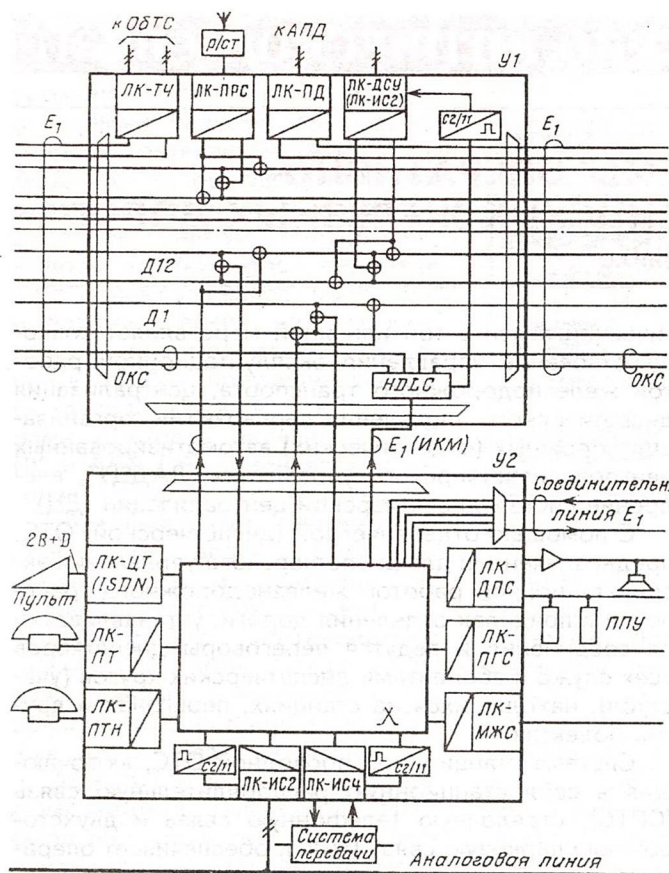 к ОбТС
р/ст
кАПД
У1
ЛК-ТЧ
ЛК-ПРС
ЛК-ПД
ЛК-ДСУ
(ЛК-ИС2)
СГ/11
E1
E1
Д12
Д1
ОКС
HDLC
ОКС
E1 (ИКМ)
У2
Соединительн
линия E1
2B+D
Пульт
ЛК-ЦТ
(ISDN)
ЛК-
ПТ
ЛК-
ПТН
ЛК-
ДПС
ЛК-
ПГС
ЛК-
МЖС
ППУ
СГ/11
ЛК-ИС2
ЛК-ИС4
СГ/11
Система
передачи
Аналоговая линия